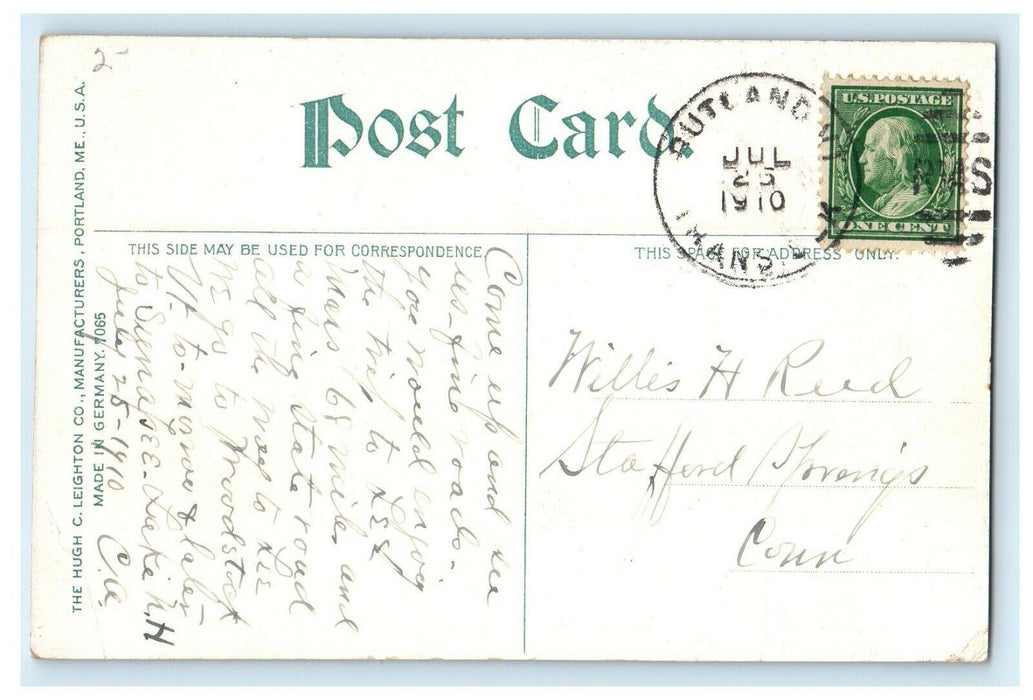 2
Post Card.
RUTLAND
JUL
25
1910
TRANS.
U.S. POSTAGE
ONE CENT
THIS SIDE MAY BE USED FOR CORRESPONDENCE.
THIS SPACE FOR ADDRESS ONLY.
THE HUGH C. LEIGHTON CO., MANUFACTURERS, PORTLAND, ME., U.S.A.
MADE IN GERMANY. 7065
Come up and see
us - fine roads -
you would enjoy
the trip to
was 68 miles and
a fine state road
all the way to
We go to Woodstock
Vt. to-morrow & later
to Sunapee-Lake N.H
July 25-1910
Willis H Reed
Stafford Springs
Conn